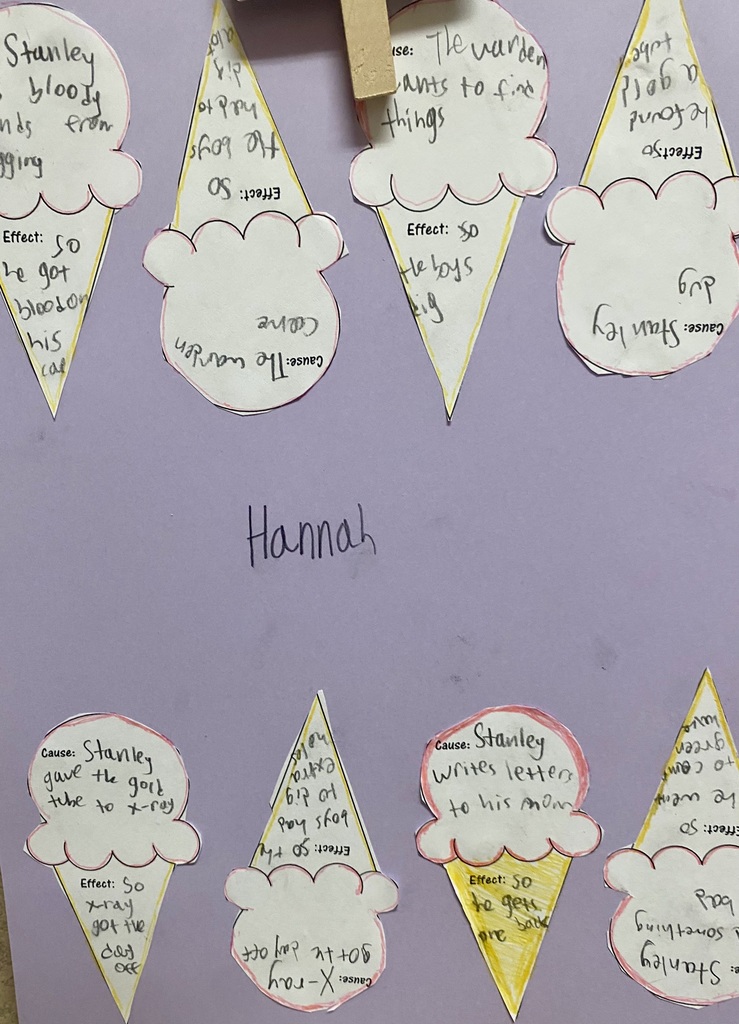 Stanley
bloody
from
Effect: so
he got
blood on
his
Cause: The warden
came
Effect: so
the boys
had to
dig
alot
The warden
to find
things
Effect: so
the boys
dig
Cause: Stanley
dug
Effect: so
he found
a gold
tube
Hannah
Cause: Stanley
gave the gold
tube to x-ray
Effect: So
x-ray
got the
day
off
Cause: X-ray
got the day off
Effect: so the
boys had
to dig
extra
hole
Cause: Stanley
writes letters
to his mom
Effect: so
he gets
one back
Stanley
something
bad
Effect: so
he went
to camp
green